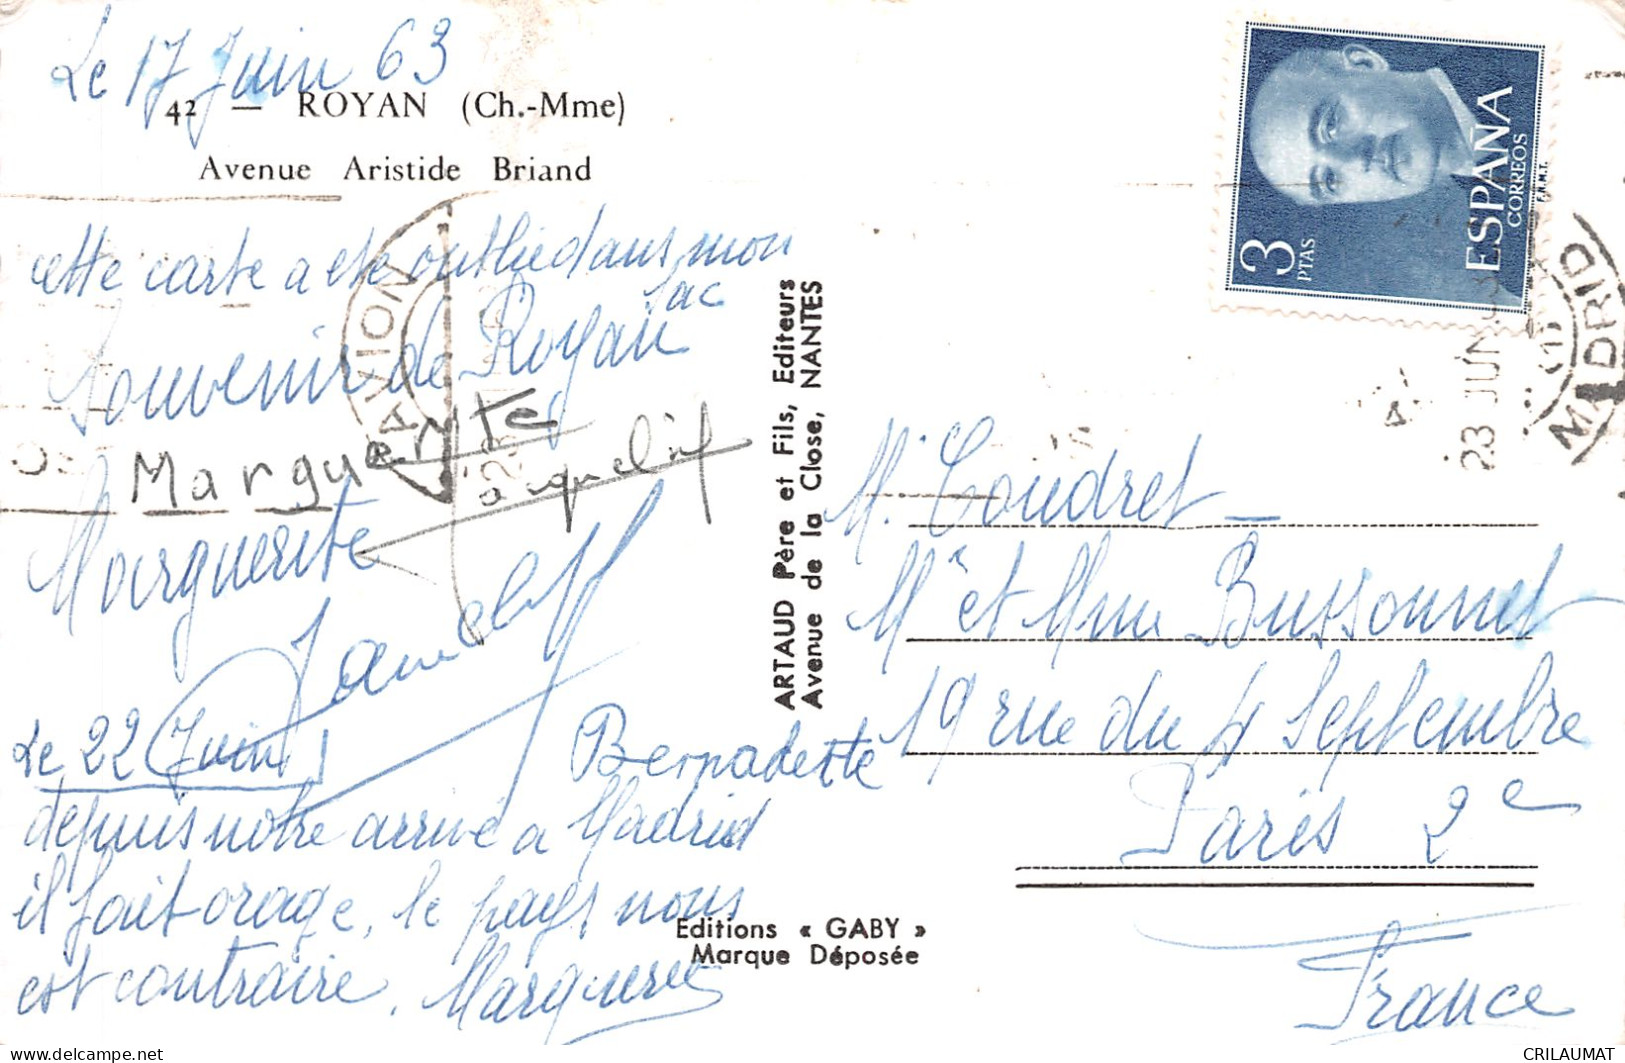 Le 17 Juin 63
42 — ROYAN (Ch.-Mme)
Avenue Aristide Briand
cette carte a ete oubliée dans mon
sac
Souvenir de Royan
Marguerite
Marguerite
Le 22 Juin
Bernadette
depuis notre arrivé a Madrid
il fait orage, le pays nous
est contraire. Marguerite
ARTAUD Père et Fils, Editeurs
Avenue de la Close, NANTES
Editions « GABY »
Marque Déposée
3 PTAS
ESPAÑA
CORREOS
F.N.M.T.
AVION
MADRID
23 JUN
M. Coudret —
Mr et Mme Bussonnet
19 rue du 4 Septembre
Paris 2e
France
delcampe.net
CRILAUMAT